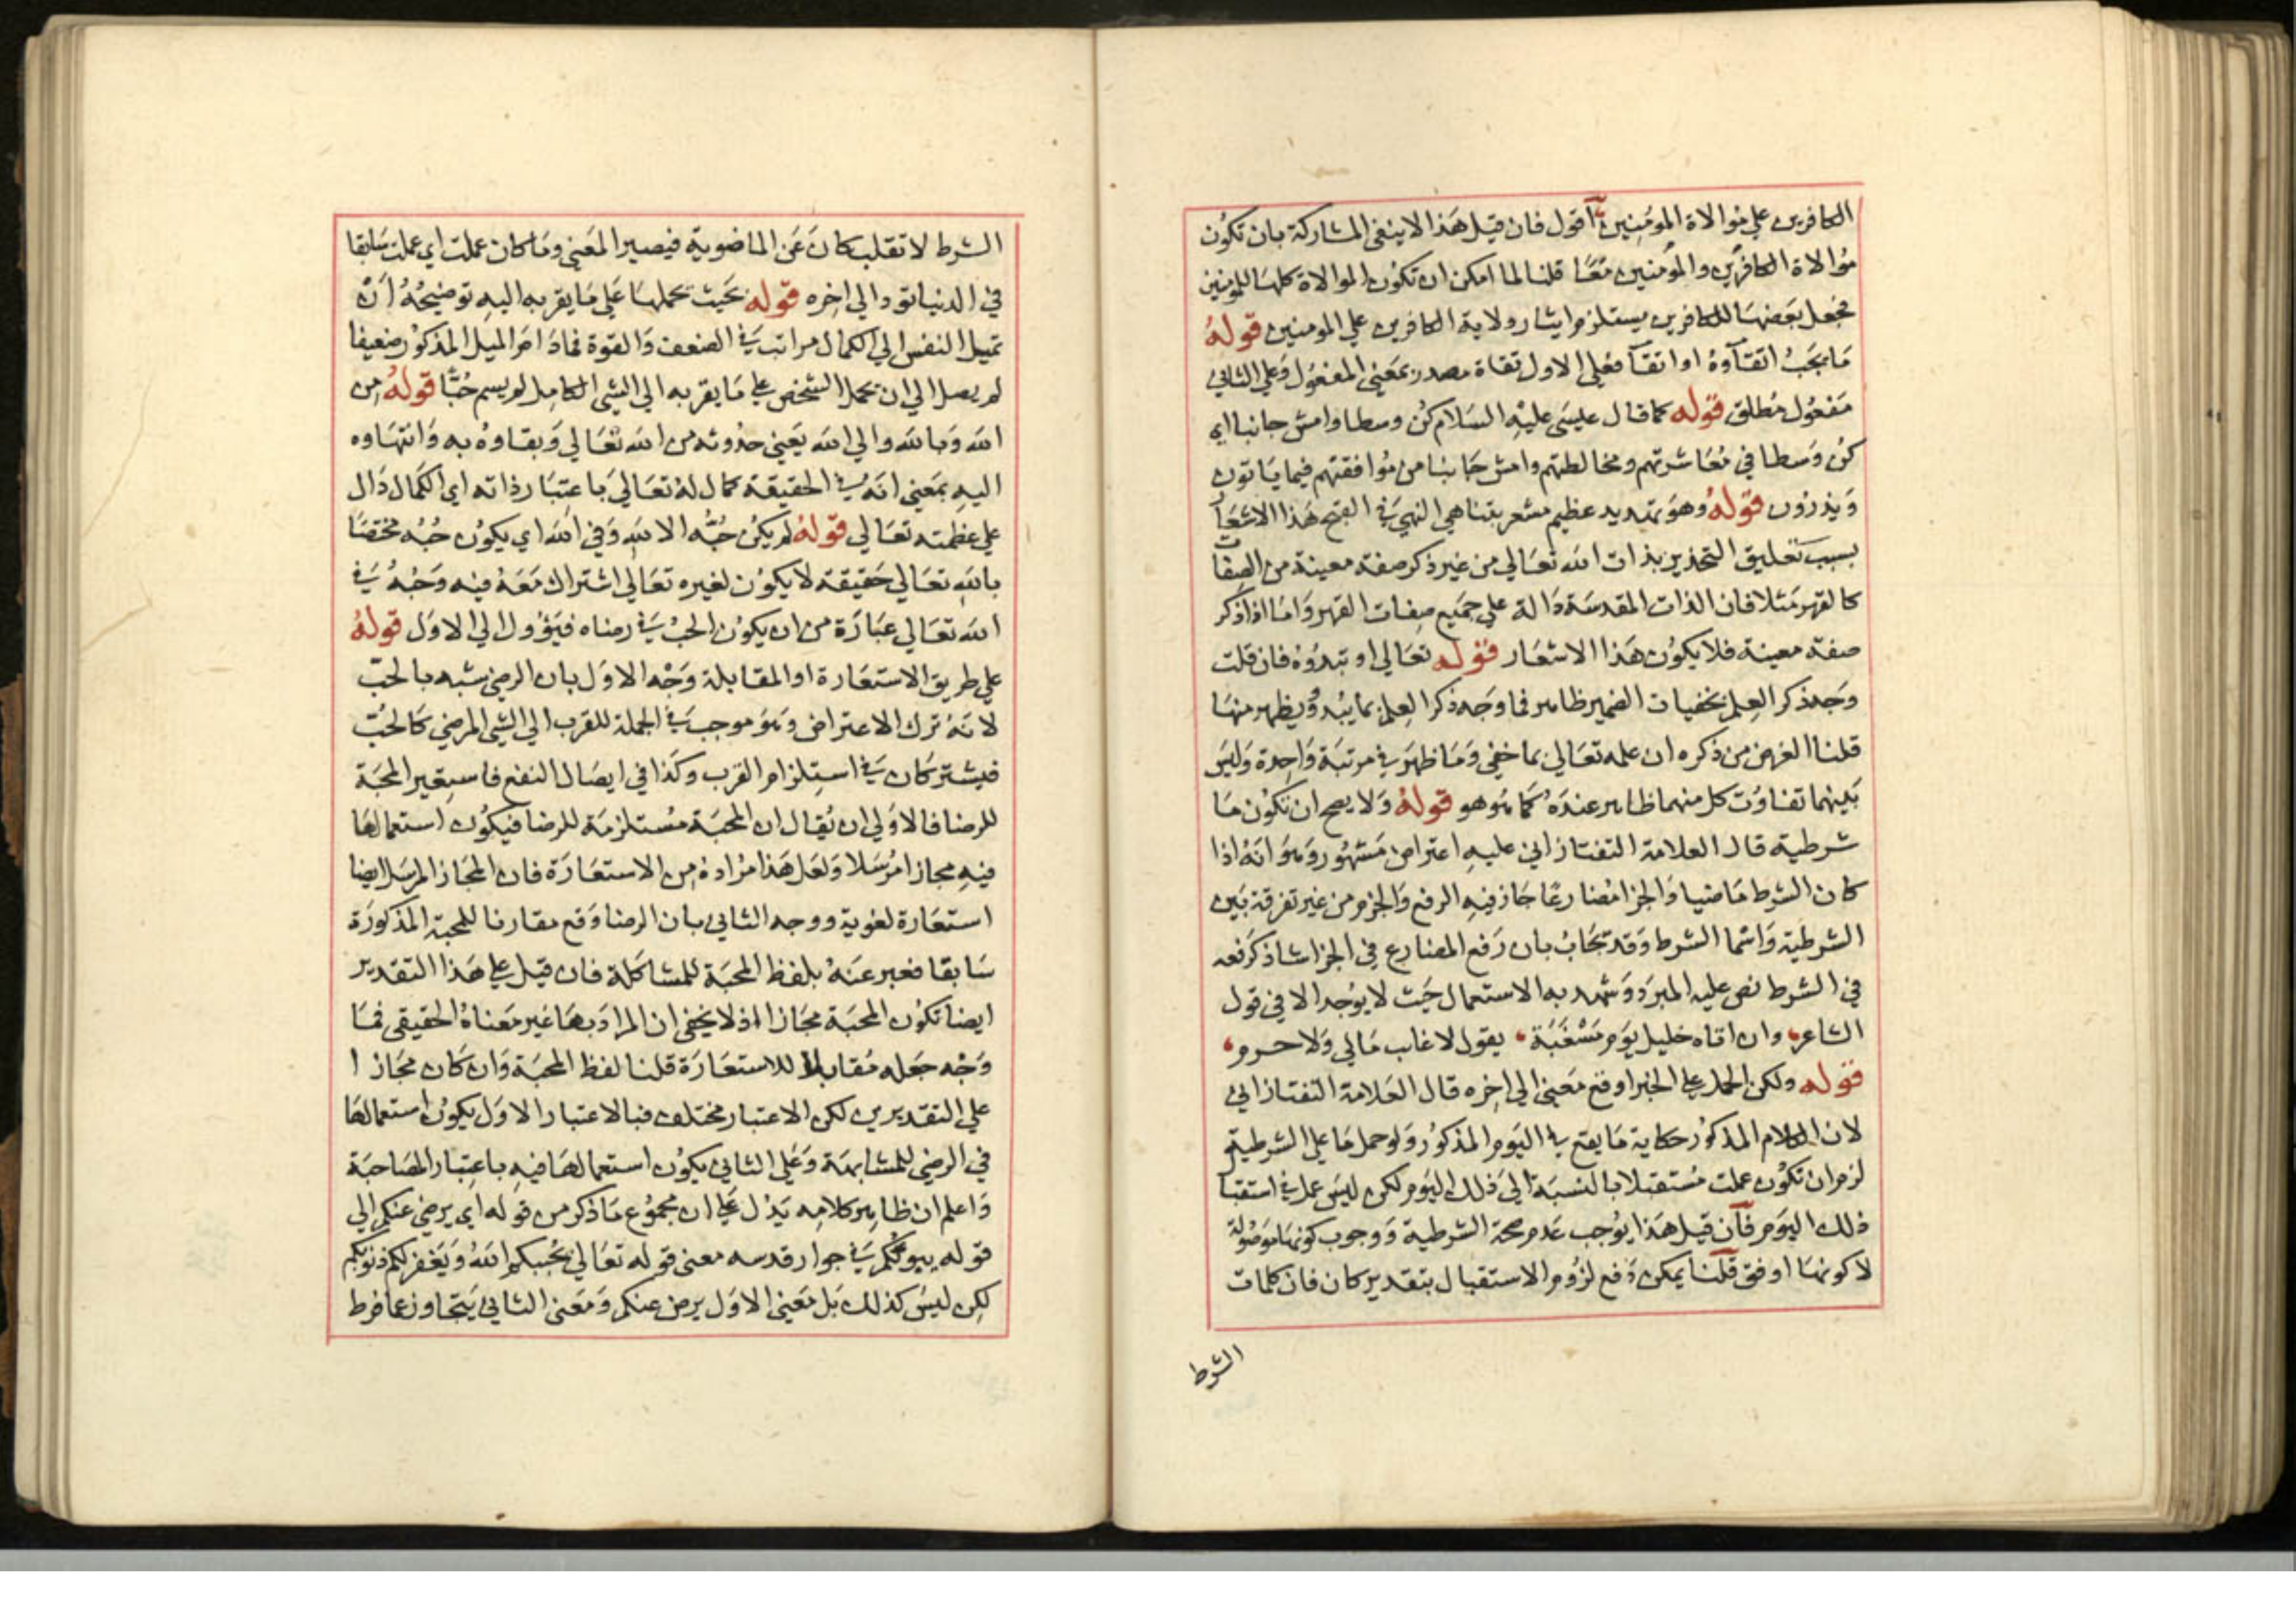 الكافرين علي موالاة المومنين اقول فان قيل هذا لاينفي المشاركة بان تكون
موالاة الكافرين والمومنين معا قلنا لما امكن ان تكون الموالاة كلها للمومنين
فجعل بعضها للكافرين يستلزم ايثار ولاية الكافرين علي المومنين قوله
ما يجب اتقاؤه او اتقا فعلي الاول تقاة مصدر بمعني المفعول وعلي الثاني
مفعول مطلق قوله كما قال عيسي عليه السلام كن وسطا وامش جانبا اي
كن وسطا في معاشرتهم ومخالطتهم وامش جانبا من موافقتهم فيما ياتون
ويذرون قوله وهو تهديد عظيم مشعر بتناهي النهي في القبح هذا الاشعار
بسبب تعليق التحذير بذات الله تعالي من غير ذكر صفة معينة من الصفات
كالقهر مثلا فان الذات المقدسة دالة علي جميع صفات القهر واما اذا ذكر
صفة معينة فلا يكون هذا الاشعار قوله تعالي او تبدوه فان قلت
وجه ذكر العلم بخفيات الضمير ظاهر فما وجه ذكر العلم بما يبدو ويظهر منها
قلنا الغرض من ذكره ان علمه تعالي بما خفي وما ظهر في مرتبة واحدة وليس
بينهما تفاوت كل منهما ظاهر عنده كما هو هو قوله ولا يصح ان تكون ما
شرطية قال العلامة التفتازاني عليه اعتراض مشهور وهو انه اذا
كان الشرط ماضيا والجزا مضارعا جاز فيه الرفع والجزم من غير تفرقة بين
الشرطية واسما الشرط وقد يجاب بان رفع المضارع في الجزا شاذ كرفعه
في الشرط نص عليه المبرد وشهد به الاستعمال حيث لا يوجد الا في قول
الشاعر، وان اتاه خليل يوم مسغبة، يقول لا غايب مالي ولا حرم،
قوله ولكن الحمل علي الخبر اوقع معني الي اخره قال العلامة التفتازاني
لان الكلام المذكور حكاية ما يقع في اليوم المذكور ولو حمل ما علي الشرطية
لزم ان تكون عملت مستقبلا بالنسبة الي ذلك اليوم لكن ليس عمل في استقبا
ذلك اليوم فان قيل هذا يوجب عدم صحة الشرطية ووجوب كونها موصولة
لا كونها اوفق قلنا يمكن دفع لزوم الاستقبال بتقدير كان فان كلمات
الشرط
الشرط لا تقلب كان عن الماضوية فيصير المعني وما كان عملت اي عملت سابقا
في الدنيا تود الي اخره قوله بحيث يحملها علي ما يقربه اليه توضيحه ان
تميل النفس الي الكمال مراتب في الضعف والقوة فما دام الميل المذكور ضعيفا
لم يصل الي ان يحمل الشخص علي ما يقربه الي الشي الكامل لم يسم حبا قوله من
الله وبالله والي الله يعني حدوثه من الله تعالي وبقاوه به وانتهاوه
اليه بمعني انه في الحقيقة كمال له تعالي باعتبار ذاته اي الكمال دال
علي عظمته تعالي قوله لم يكن حبه الا لله وفي الله اي يكون حبه مختصا
بالله تعالي حقيقة لا يكون لغيره تعالي اشتراك معه فيه وحبه في
الله تعالي عبارة من ان يكون الحب في رضاه فيؤول الي الاول قوله
علي طريق الاستعارة او المقابلة وجه الاول بان الرضي شبه بالحب
لانه ترك الاعتراض وهو موجب في الجملة للقرب الي الشي المرضي كالحب
فيشتركان في استلزام القرب وكذا في ايصال النفع فاستعير المحبة
للرضا فالاولي ان يقال ان المحبة مستلزمة للرضا فيكون استعمالها
فيه مجازا مرسلا ولعل هذا مراده من الاستعارة فان المجاز المرسل ايضا
استعارة لغوية ووجه الثاني بان الرضا وقع مقارنا للمحبة المذكورة
سابقا فعبر عنه بلفظ المحبة للمشاكلة فان قيل علي هذا التقدير
ايضا تكون المحبة مجازا اذ لا يخفي ان المراد بها غير معناه الحقيقي فما
وجه جعله مقابلا للاستعارة قلنا لفظ المحبة وان كان مجازا
علي التقديرين لكن الاعتبار مختلف فبالاعتبار الاول يكون استعمالها
في الرضي للمشابهة وعلي الثاني يكون استعمالها فيه باعتبار المصاحبة
واعلم ان ظاهر كلامه يدل علي ان مجموع ما ذكر من قوله اي يرضي عنكم الي
قوله يبوئكم في جوار قدسه معني قوله تعالي يحببكم الله ويغفر لكم ذنوبكم
لكن ليس كذلك بل معني الاول يرض عنكم ومعني الثاني يتجاوز عما فرط